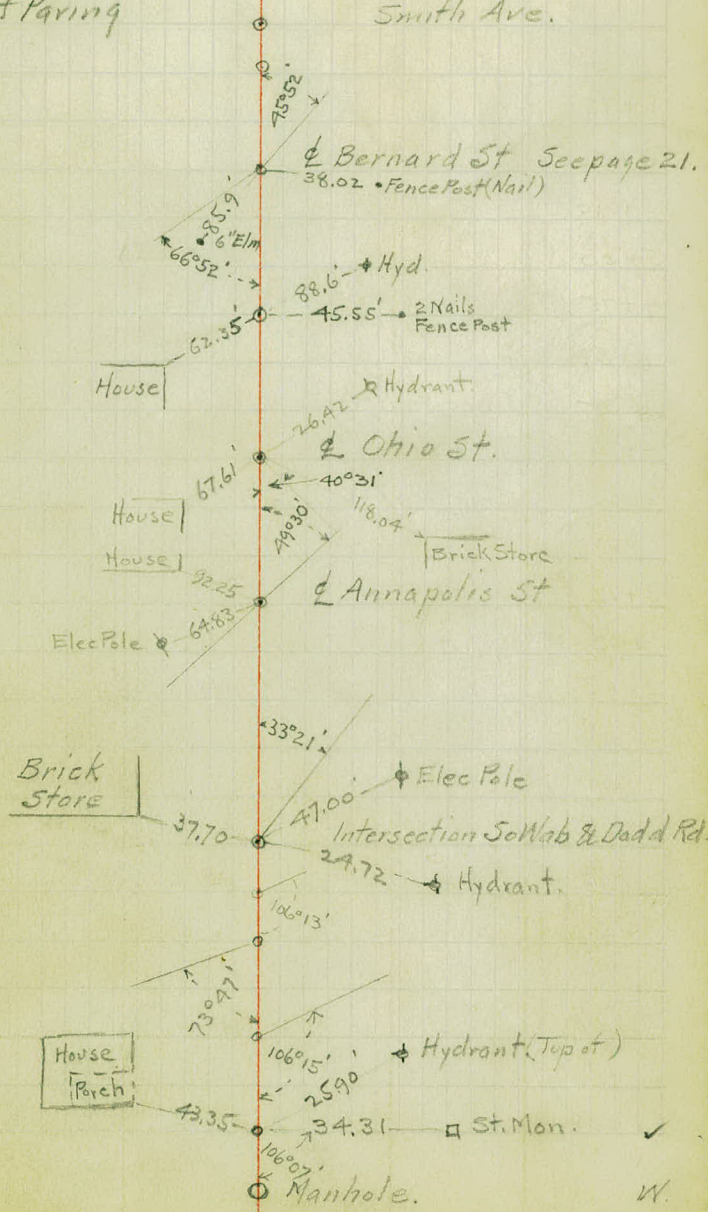 f Paving Smith Ave.
45°52'
℄ Bernard St See page 21.
38.02 Fence Post (Nail)
85.9'
6" Elm
66°52'
Hyd.
88.6'
45.55' 2 Nails
Fence Post
62.35'
House
Hydrant.
26.42
℄ Ohio St.
67.61'
40°31'
House
49°30'
118.04'
Brick Store
House
92.25
℄ Annapolis St
64.83
Elec Pole
33°21'
Brick
Store
Elec Pole
47.00'
37.70
Intersection So Wab & Dodd Rd.
24.72
Hydrant.
106°13'
73°47'
House
Porch
106°15'
Hydrant. (Top of)
25.90'
43.35
34.31 St. Mon. ✓
106°07'
Manhole. W.